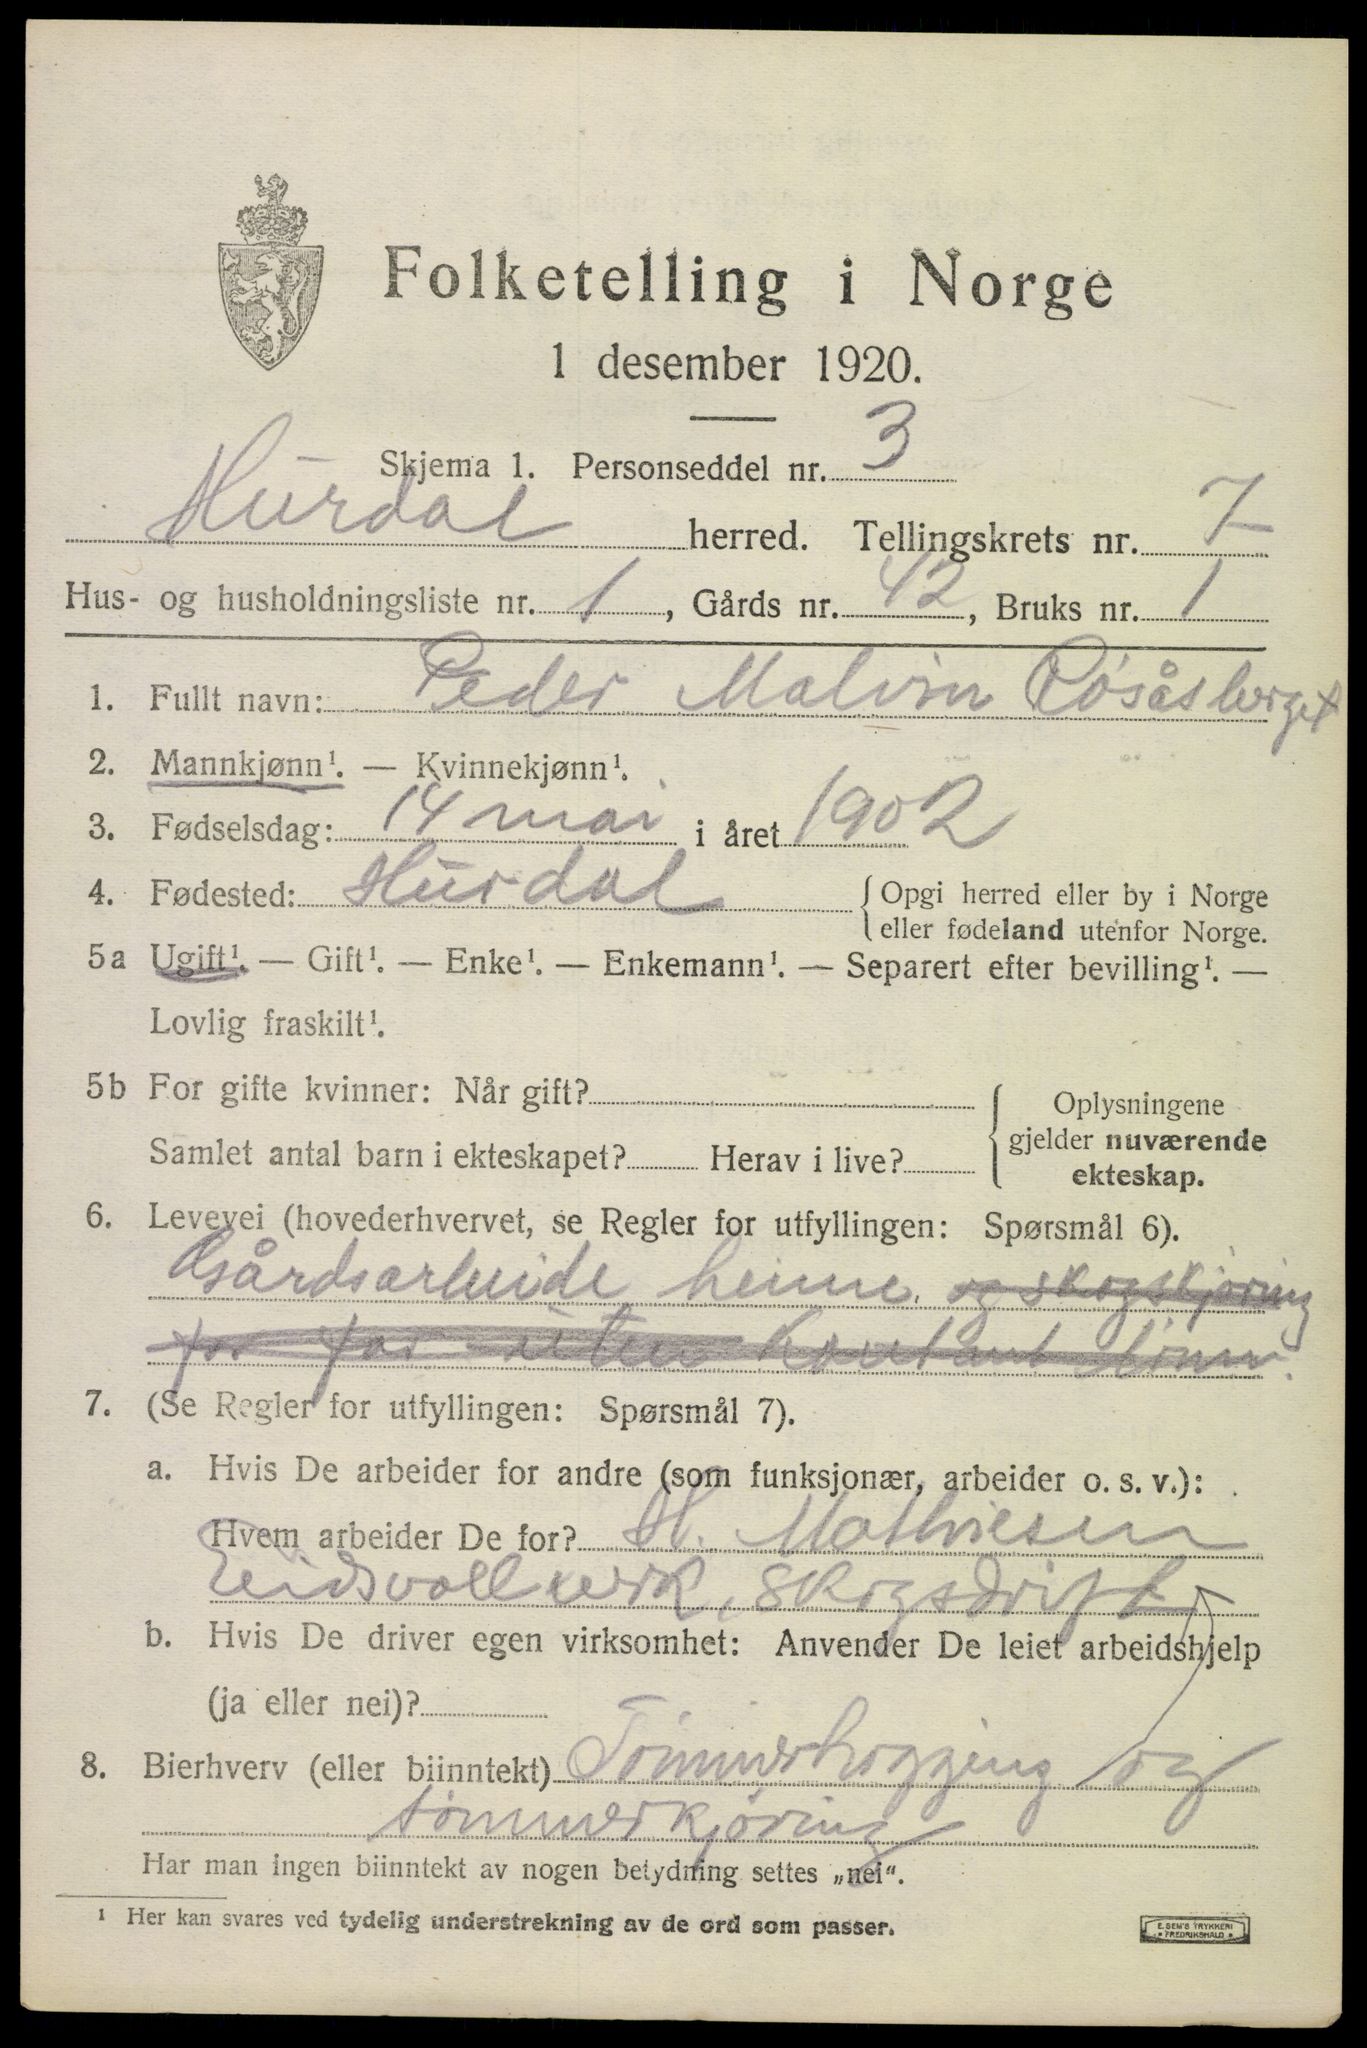 Folketelling i Norge
1 desember 1920.
Skjema 1. Personseddel nr. 3
Hurdal herred. Tellingskrets nr. 7
Hus- og husholdningsliste nr. 1, Gårds nr. 42, Bruks nr. 1
1. Fullt navn: Peder Malvin Røsåsberget
2. Mannkjønn¹. — Kvinnekjønn¹.
3. Fødselsdag: 14 mai i året 1902
4. Fødested: Hurdal { Opgi herred eller by i Norge
eller fødeland utenfor Norge.
5a Ugift¹. — Gift¹. — Enke¹. — Enkemann¹. — Separert efter bevilling¹. —
Lovlig fraskilt¹.
5b For gifte kvinner: Når gift? { Oplysningene
gjelder nuværende
Samlet antal barn i ekteskapet? Herav i live?
ekteskap.
6. Levevei (hovederhvervet, se Regler for utfyllingen: Spørsmål 6).
Gårdsarbeide heime. og skogskjøring
for far uten kontant lønn.
7. (Se Regler for utfyllingen: Spørsmål 7).
a. Hvis De arbeider for andre (som funksjonær, arbeider o. s. v.):
Hvem arbeider De for? H. Mathiesen
Eidsvoll verk, skogsdrift
b. Hvis De driver egen virksomhet: Anvender De leiet arbeidshjelp
(ja eller nei)?
8. Bierhverv (eller biinntekt) Tømmerhogging og
tømmerkjøring
Har man ingen biinntekt av nogen betydning settes „nei“.
¹ Her kan svares ved tydelig understrekning av de ord som passer.
E. SEM'S TRYKKERI
FREDRIKSHALD